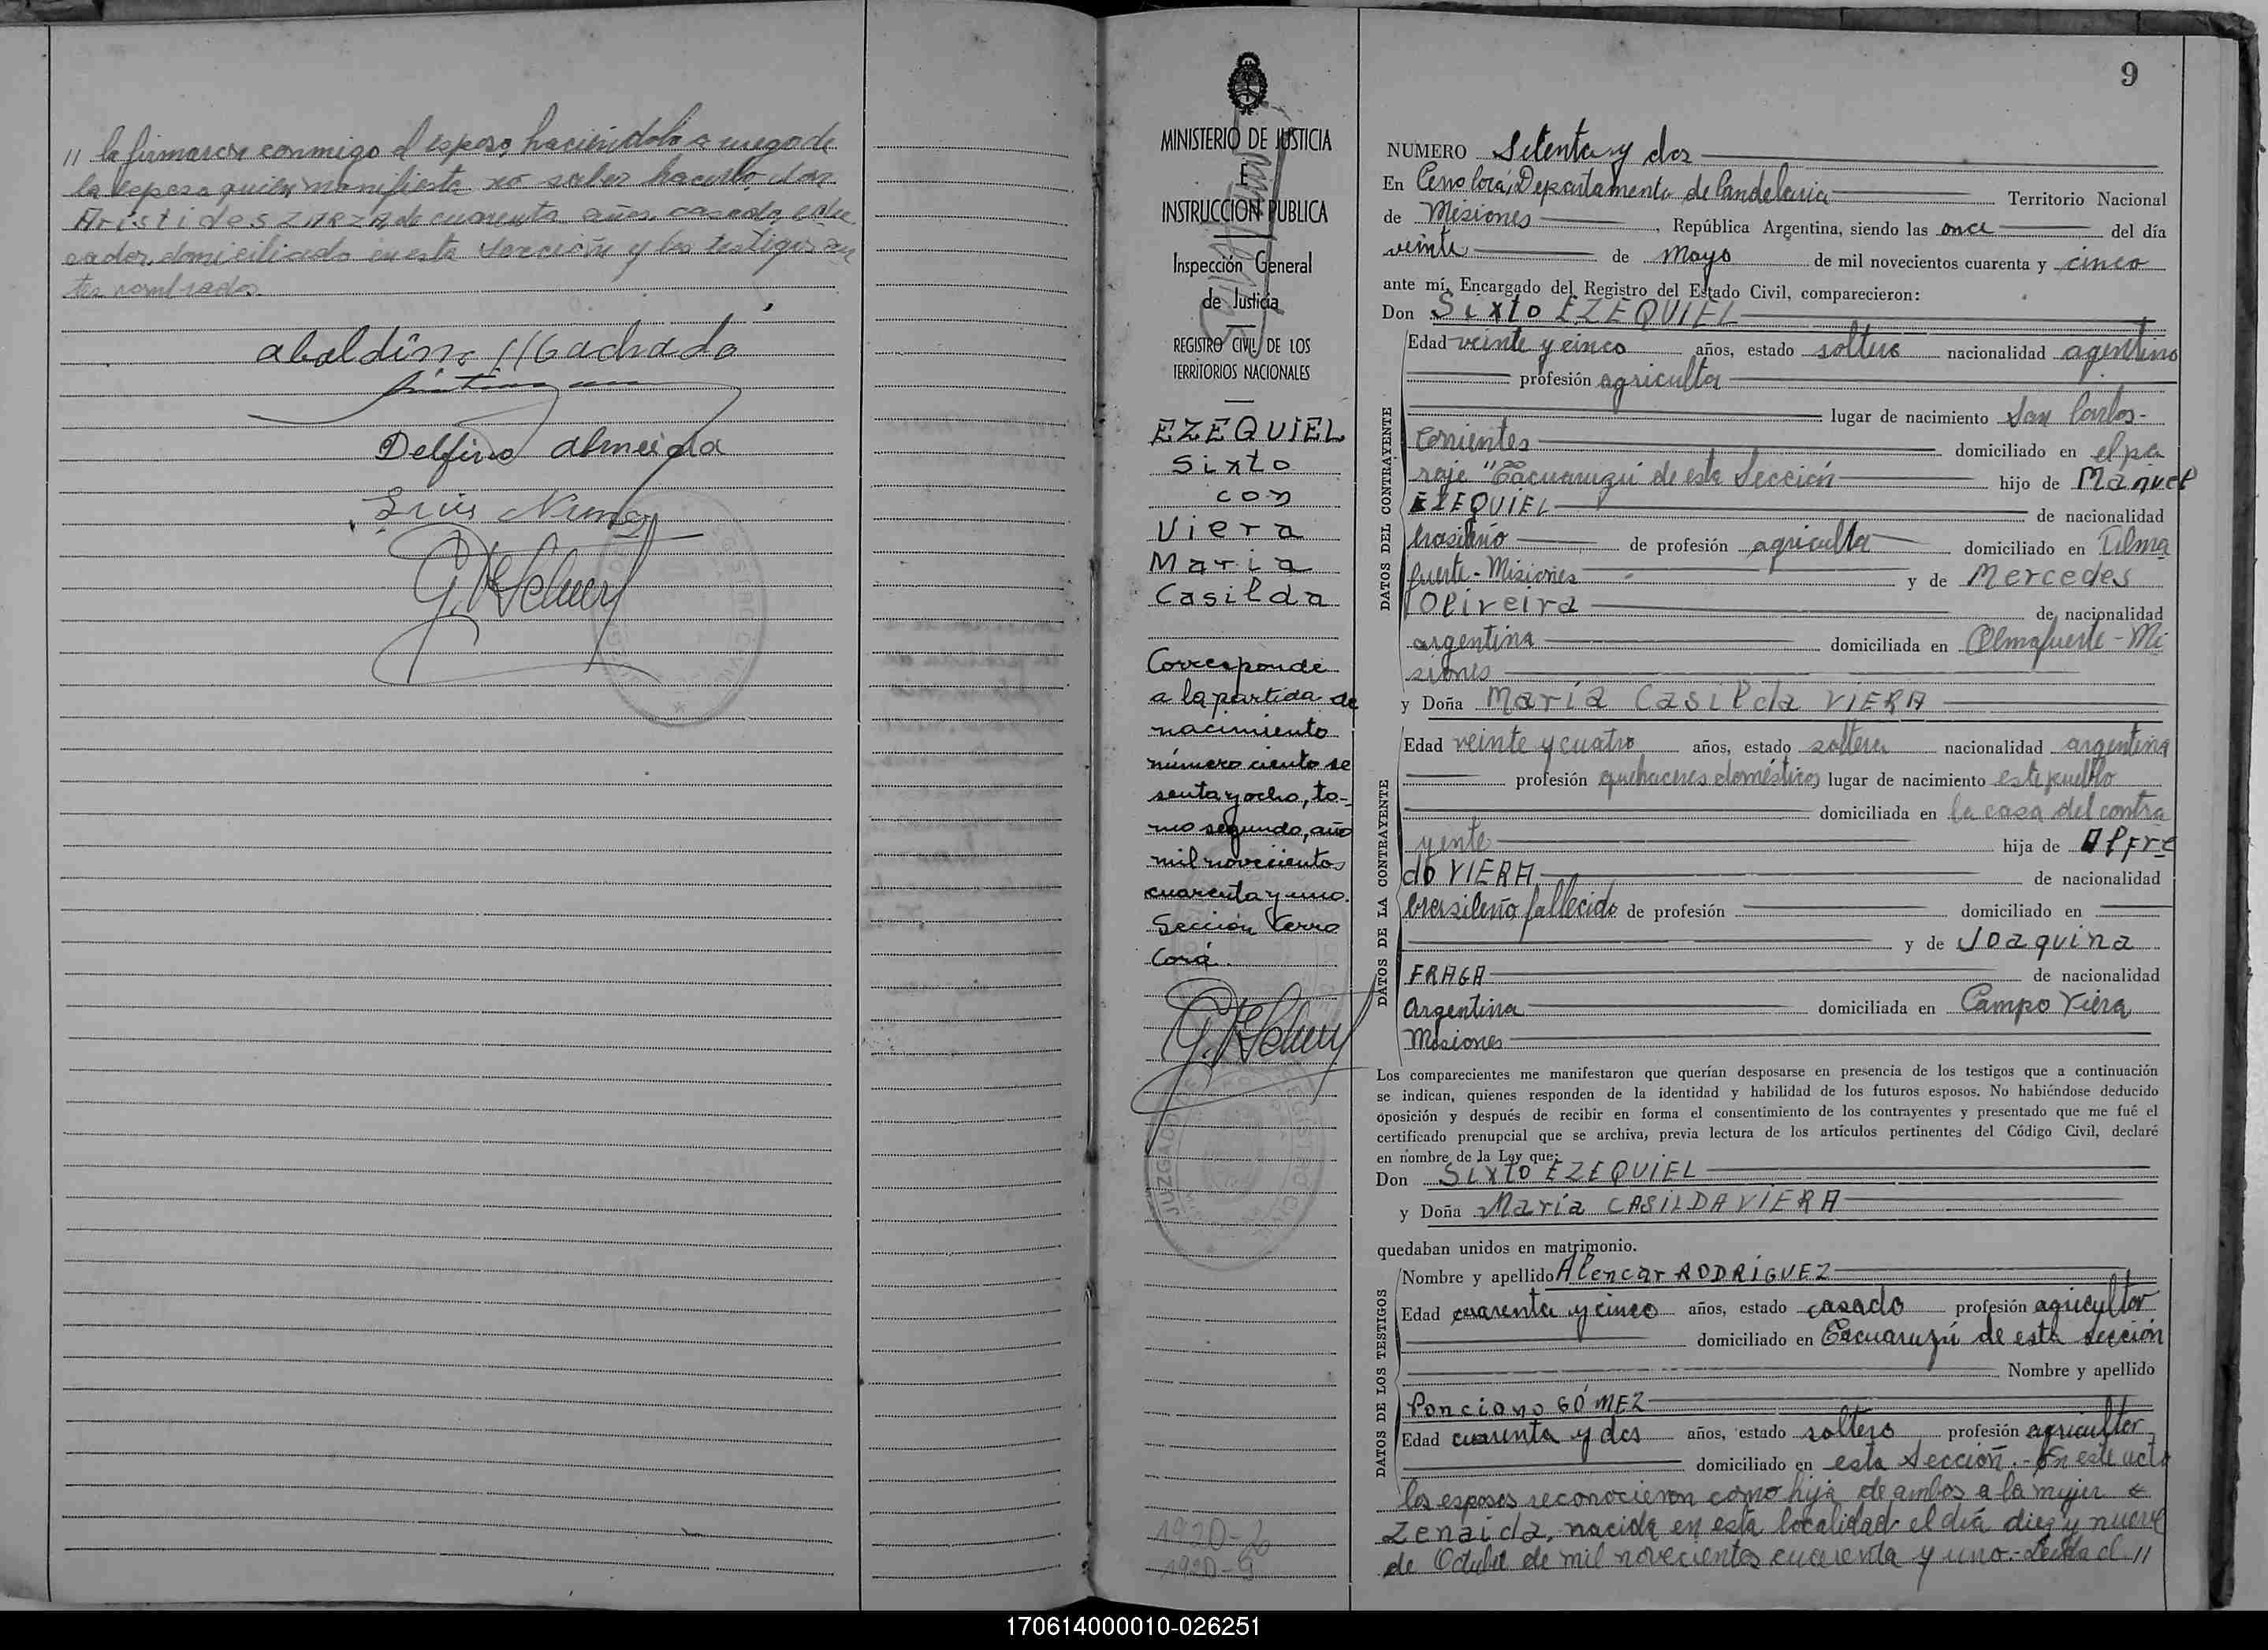 // la firmaron conmigo el esposo, haciéndolo a ruego de
la esposa quien manifiesta no saber hacerlo, don
Aristides ZARZA, de cuarenta años, casado,
domiciliado en esta sección y los testigos an
tes nombrados.
Delfino Almeida
Luis Nunez
MINISTERIO DE JUSTICIA
E
INSTRUCCION PUBLICA
Inspección General
de Justicia
REGISTRO CIVIL DE LOS
TERRITORIOS NACIONALES
EZEQUIEL
Sixto
con
Viera
Maria
Casilda
Corresponde
a la partida de
nacimiento
número ciento se
senta y ocho, to-
mo segundo, año
mil novecientos
cuarenta y uno.
Sección Cerro
Corá.
1920-2
1920-G
9
NUMERO Setenta y dos
En Cerro Corá, Departamento de Candelaria Territorio Nacional
de Misiones, República Argentina, siendo las once del día
veinte de Mayo de mil novecientos cuarenta y cinco
ante mí, Encargado del Registro del Estado Civil, comparecieron:
Don Sixto EZEQUIEL
DATOS DEL CONTRAYENTE
Edad veinte y cinco años, estado soltero nacionalidad agentino
profesión agriculta
lugar de nacimiento San Carlos-
Corrientes domiciliado en el pa
raje "Tacuaruzú de esta Sección hijo de Manuel
EZEQUIEL de nacionalidad
brasileño de profesión agriculta domiciliado en Alma
fuerte - Misiones y de Mercedes
Oliveira de nacionalidad
argentina domiciliada en Almafuerte - Mi
siones
y Doña María Casilda VIERA
DATOS DE LA CONTRAYENTE
Edad veinte y cuatro años, estado soltera nacionalidad argentina
profesión quehaceres domésticos lugar de nacimiento este pueblo
domiciliada en la casa del contra
yente hija de Alfre
do VIERA de nacionalidad
brasileño fallecido de profesión domiciliado en
y de Joaquina
FRAGA de nacionalidad
Argentina domiciliada en Campo Viera
Misiones
Los comparecientes me manifestaron que querían desposarse en presencia de los testigos que a continuación
se indican, quienes responden de la identidad y habilidad de los futuros esposos. No habiéndose deducido
oposición y después de recibir en forma el consentimiento de los contrayentes y presentado que me fué el
certificado prenupcial que se archiva, previa lectura de los artículos pertinentes del Código Civil, declaré
en nombre de la Ley que:
Don SIXTO EZEQUIEL
y Doña María CASILDA VIERA
quedaban unidos en matrimonio.
DATOS DE LOS TESTIGOS
Nombre y apellido Alencar RODRÍGUEZ
Edad cuarenta y cinco años, estado casado profesión agricultor
domiciliado en Tacuaruzú de esta sección
Nombre y apellido
Ponciano GÓMEZ
Edad cuarenta y dos años, estado soltero profesión agricultor
domiciliado en esta Sección.- En este acto
los esposos reconocieron como hija de ambos a la mujer
Zenaida, nacida en esta localidad el día diez y nueve
de Octubre de mil novecientos cuarenta y uno.- Leida el //
170614000010-026251